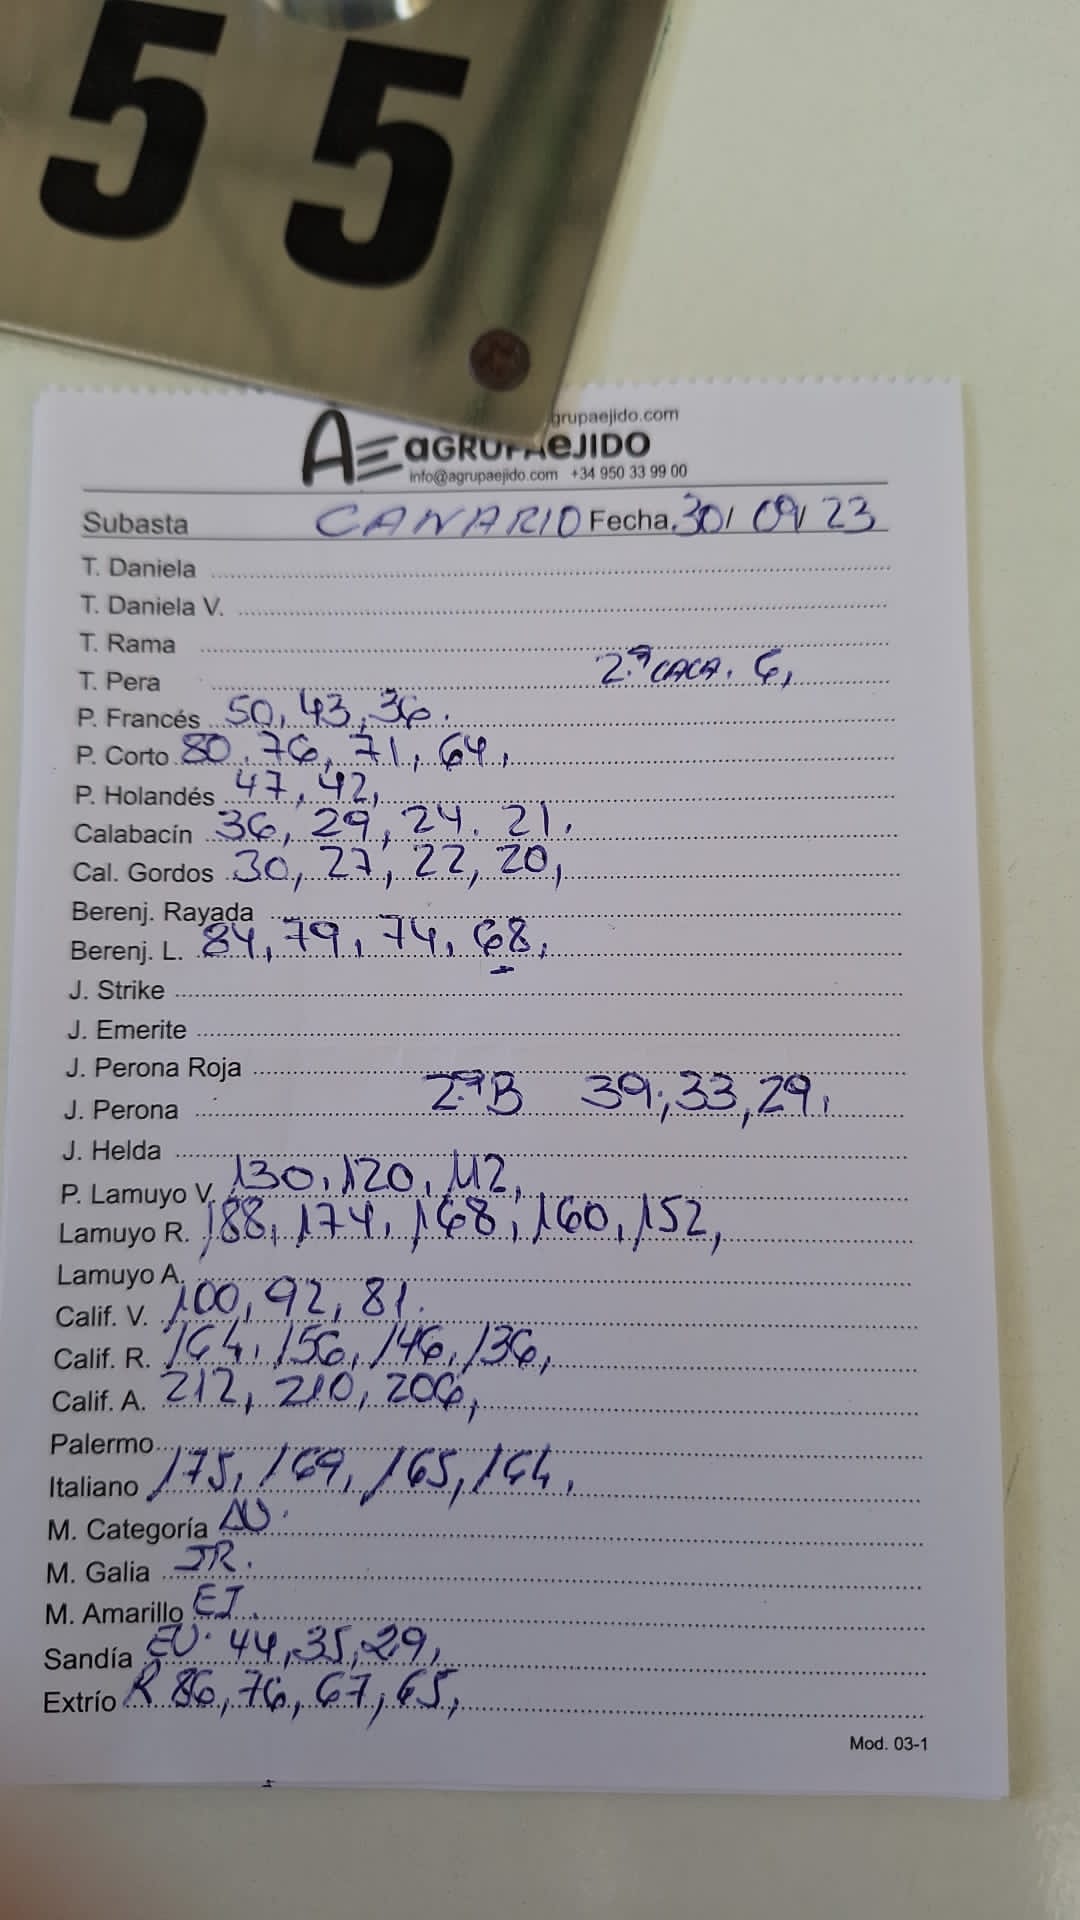 55
grupaejido.com
AE aGRUPAeJIDO
info@agrupaejido.com +34 950 33 99 00
Subasta CANARIO Fecha 30/ 09/ 23
T. Daniela
T. Daniela V.
T. Rama
T. Pera 2.ª CACA. 6,
P. Francés 50, 43, 36.
P. Corto 80, 76, 71, 64,
P. Holandés 47, 42,
Calabacín 36, 29, 24. 21.
Cal. Gordos 30, 27, 22, 20,
Berenj. Rayada
Berenj. L. 84, 79, 74, 68,
J. Strike
J. Emerite
J. Perona Roja
J. Perona 2.ª B 39, 33, 29,
J. Helda
P. Lamuyo V. 130, 120, 112,
Lamuyo R. 188, 174, 168, 160, 152,
Lamuyo A.
Calif. V. 100, 92, 81.
Calif. R. 164, 156, 146, 136,
Calif. A. 212, 210, 206,
Palermo
Italiano 175, 169, 165, 164,
M. Categoría
M. Galia JR.
M. Amarillo EJ.
Sandía EU. 44, 35, 29,
Extrío R 86, 76, 67, 65,
Mod. 03-1